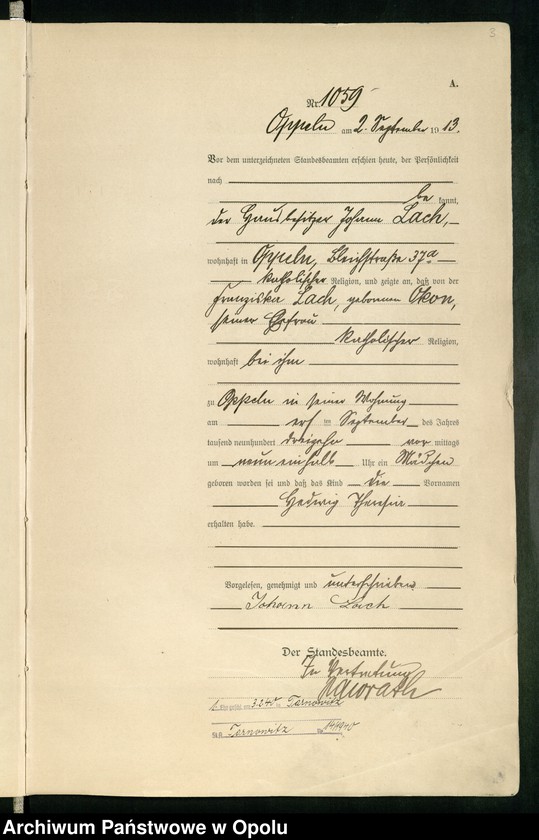 8
A.
Nr. 1059
Oppeln am 2. September 1913.
Vor dem unterzeichneten Standesbeamten erschien heute, der Persönlichkeit
nach
be kannt,
der Hausbesitzer Johann Lach,
wohnhaft in Oppeln, Bleichstraße 37a
katholischer Religion, und zeigte an, daß von der
Franziska Lach, geborenen Okon,
seiner Ehefrau
katholischer Religion,
wohnhaft bei ihm
zu Oppeln in seiner Wohnung
am ten September des Jahres
tausend neunhundert dreizehn vor mittags
um neun einhalb Uhr ein Mädchen
geboren worden sei und daß das Kind die Vornamen
Hedwig Theresia
erhalten habe.
Vorgelesen, genehmigt und unterschrieben
Johann Lach
Der Standesbeamte.
In Vertretung
Tarnowitz
Tarnowitz
Archiwum Państwowe w Opolu